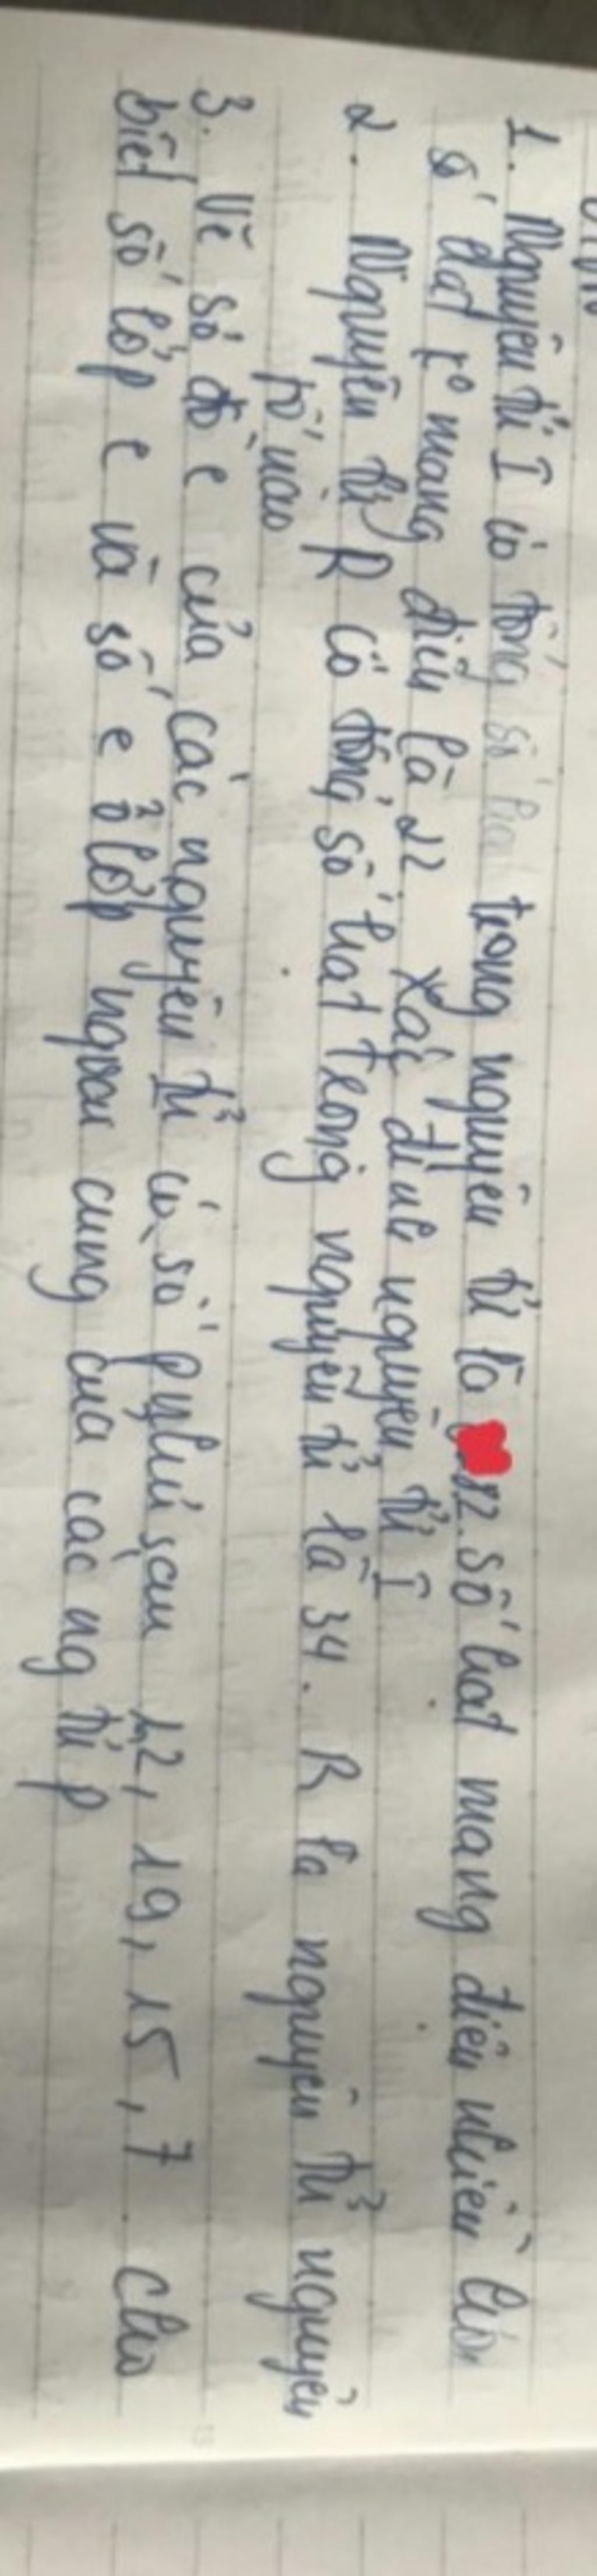 1. Nguyên tử I có tổng số hạt trong nguyên tử là 82. Số hạt mang điện nhiều hơn
số hạt ko mang điện là 22. Xác định nguyên tử I
2. Nguyên tử R có tổng số hạt trong nguyên tử là 34. R là nguyên tử nguyên
tố nào
3. Vẽ sơ đồ e của các nguyên tử có số p như sau 12, 19, 15, 7. Cho
biết số lớp e và số e ở lớp ngoài cùng của các ng tử p